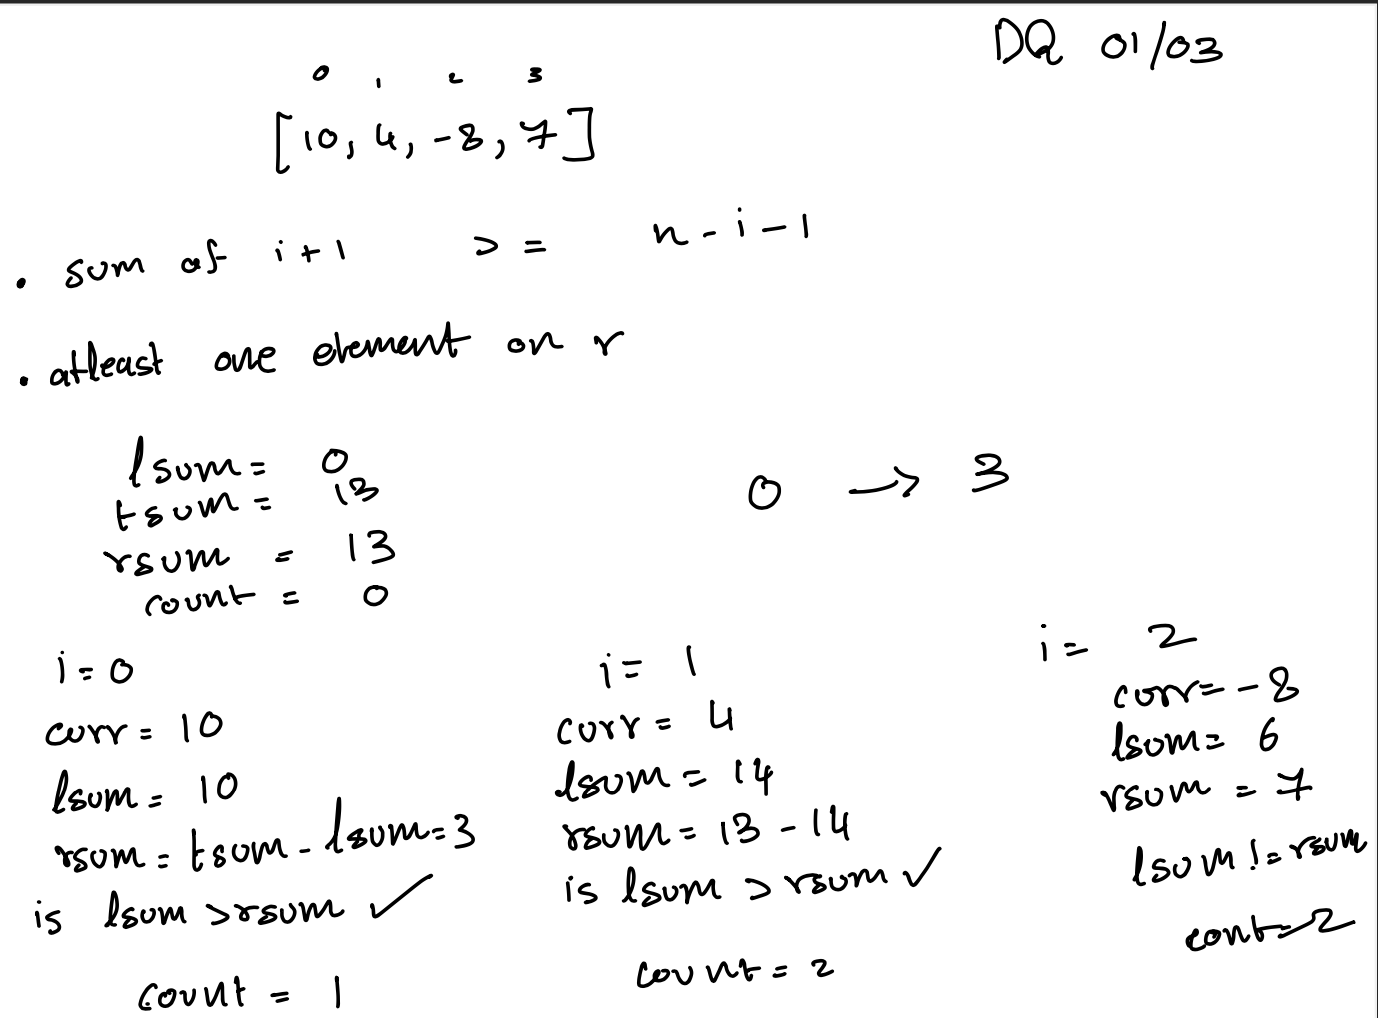 DQ 01/03
0 1 2 3
[10, 4, -8, 7]
. sum of i+1 >= n-i-1
. atleast one element on r
lsum = 0
tsum = 13
rsum = 13
count = 0
0 → 3
i = 0
curr = 10
lsum = 10
rsum = tsum - lsum = 3
is lsum > rsum ✓
count = 1
i = 1
curr = 4
lsum = 14
rsum = 13 - 14
is lsum > rsum ✓
count = 2
i = 2
curr = -8
lsum = 6
rsum = 7
lsum != rsum
cont = 2